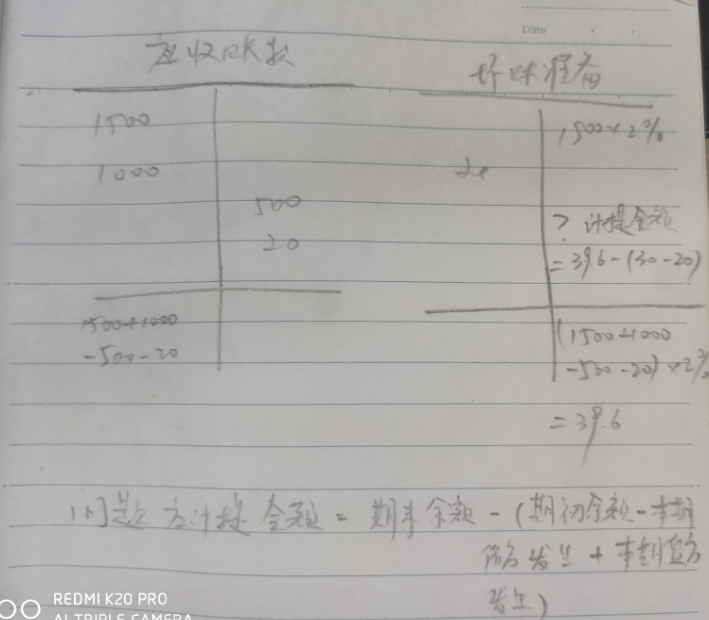 Date
应收账款
坏账准备
1500
1500×2%
1000
20
500
? 计提金额
20
=39.6-(30-20)
1500+1000
-500-20
(1500+1000
-500-20)×2%
=39.6
问题:应计提金额=期末余额-(期初余额-本期
借方发生+本期贷方
发生)
REDMI K20 PRO
AI TRIPLE CAMERA